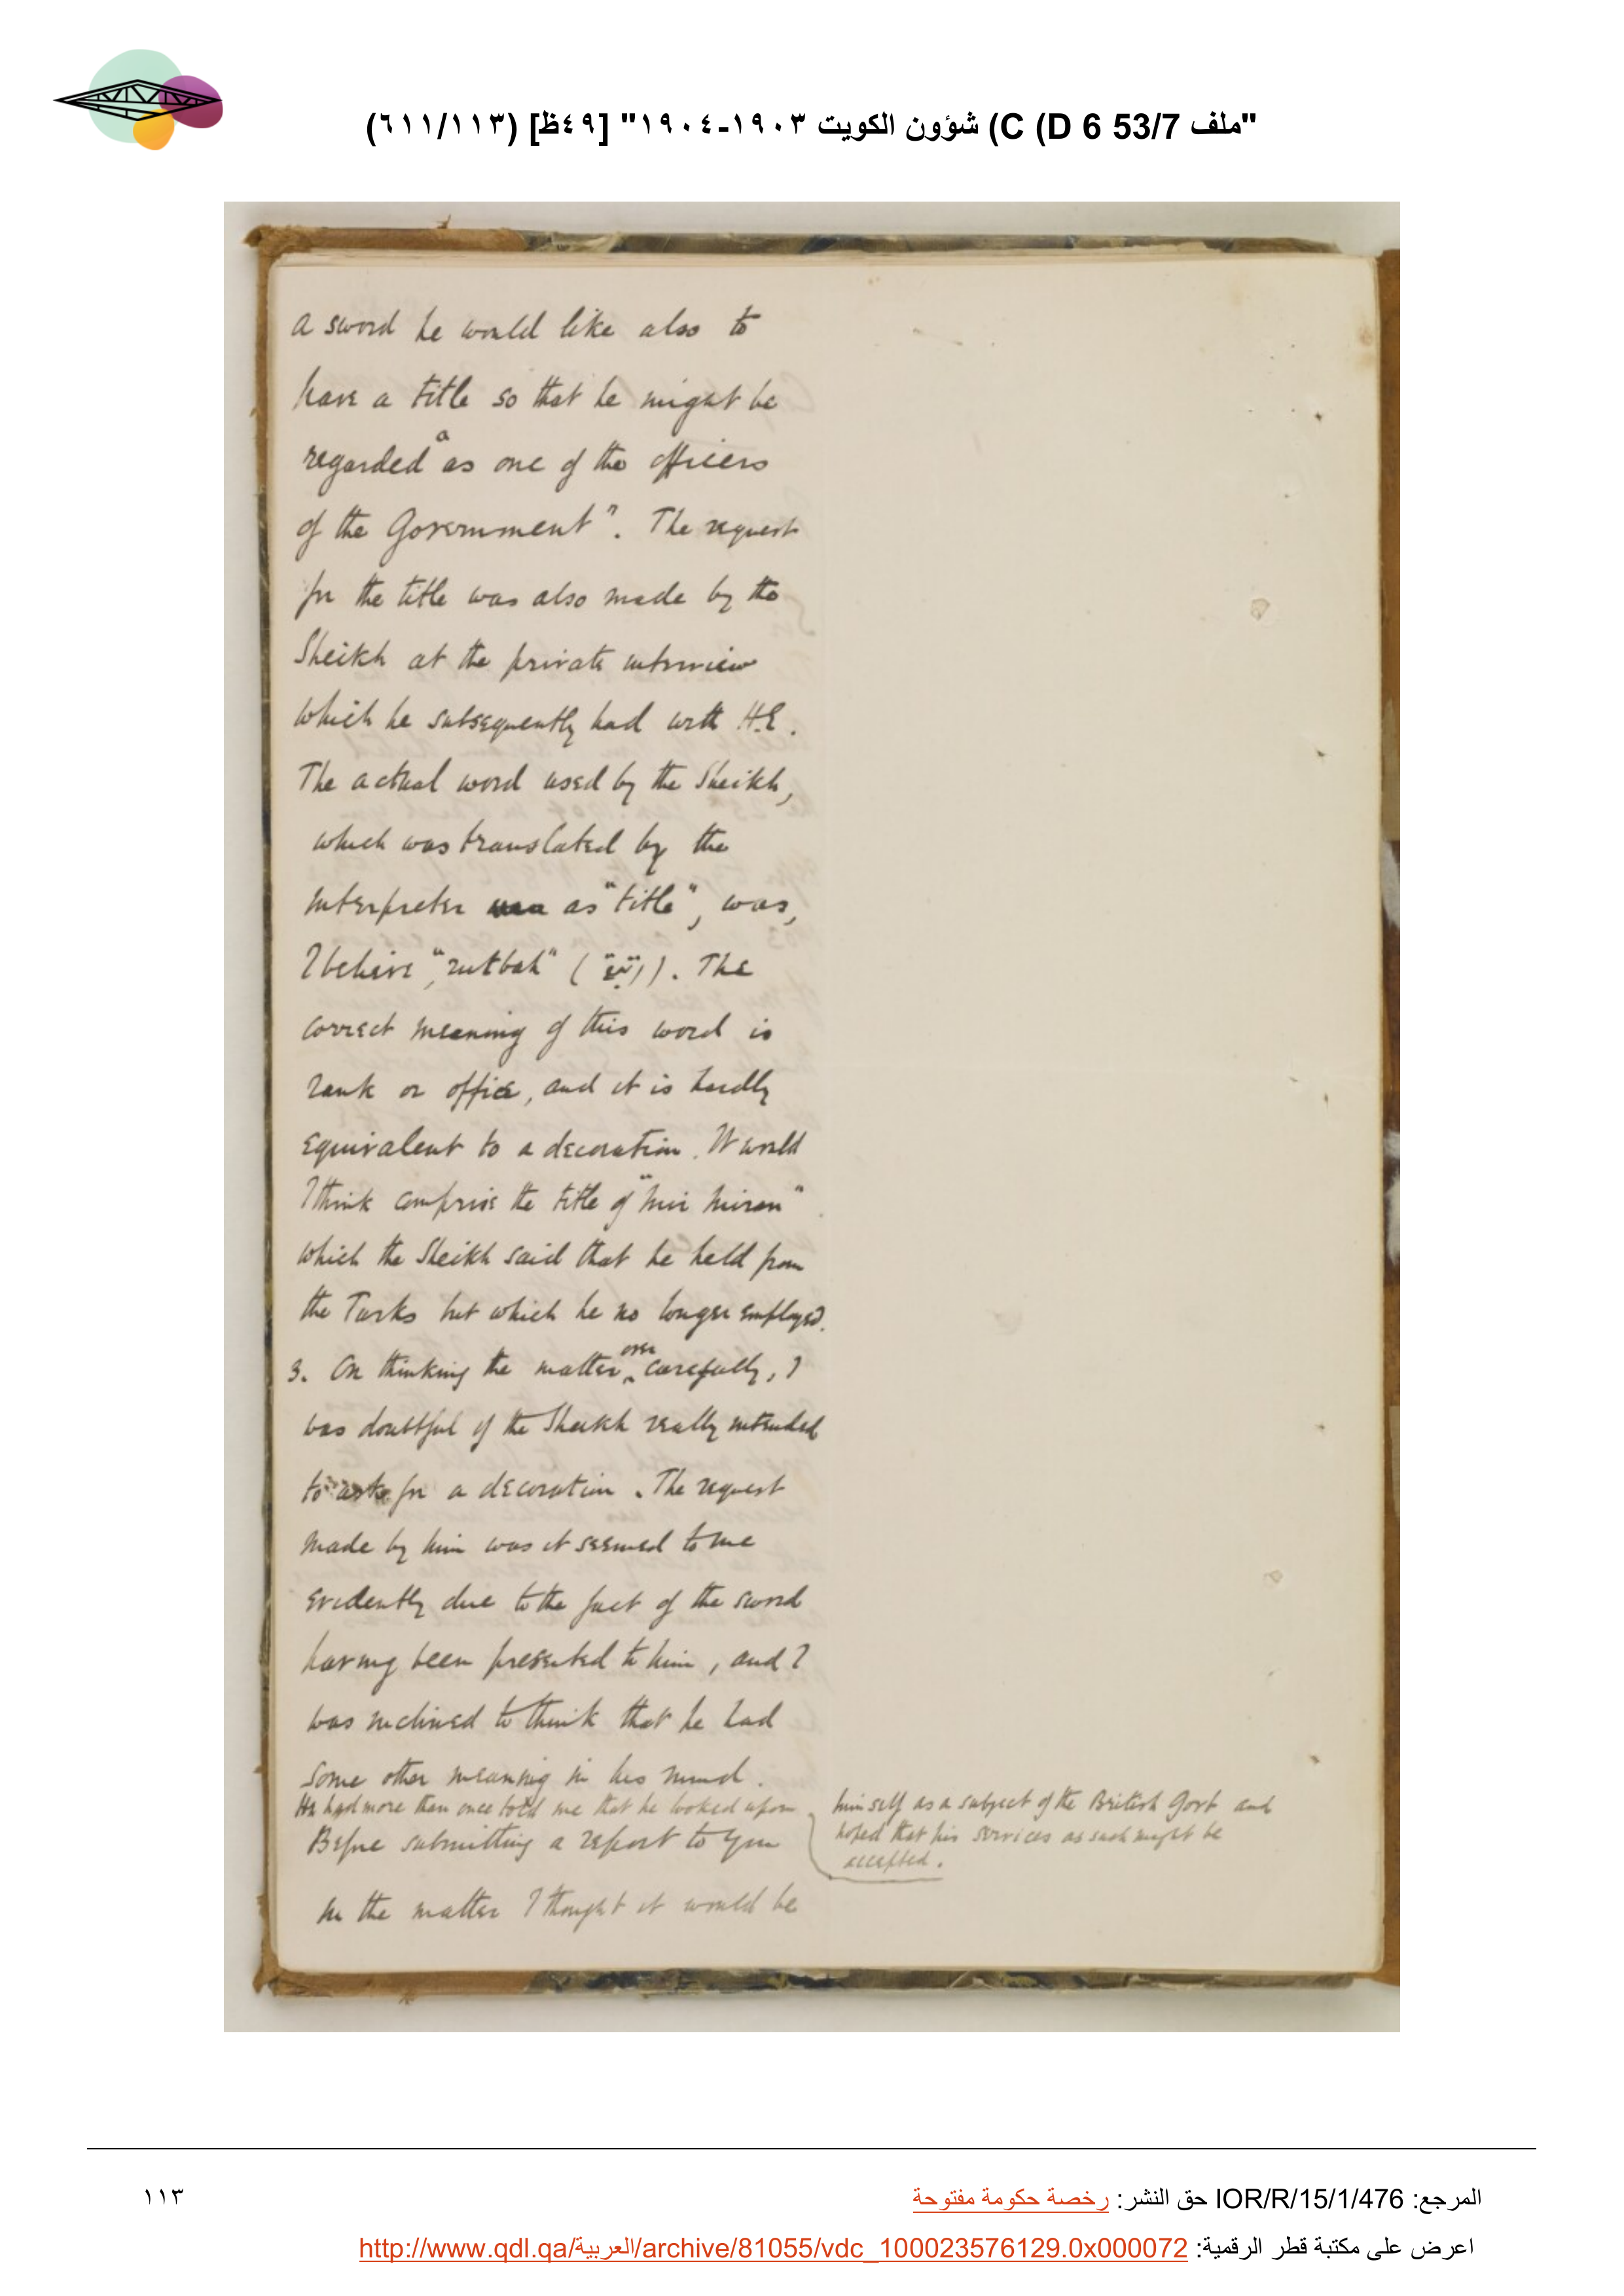 "ملف 53/7 C (D 6) شؤون الكويت ١٩٠٣-١٩٠٤" [٤٩ظ] (٦١١/١١٣)
a sword he would like also to
have a title so that he might be
regarded a as one of the officers
of the Government". The request
for the title was also made by the
Sheikh at the private interview
which he subsequently had with H.E.
The actual word used by the Sheikh,
which was translated by the
interpreter as "title", was,
I believe, "rutbah" (رتبة). The
correct meaning of this word is
rank or office, and it is hardly
equivalent to a decoration. It would
I think comprise the title of "mir miran"
which the Sheikh said that he held from
the Turks but which he no longer employed.
3. On thinking the matter over carefully, I
was doubtful if the Sheikh really intended
to ask for a decoration. The request
made by him was it seemed to me
evidently due to the fact of the sword
having been presented to him, and I
was inclined to think that he had
some other meaning in his mind.
He had more than once told me that he looked upon
himself as a subject of the British Govt and
hoped that his services as such might be
accepted.
Before submitting a report to you
in the matter I thought it would be
المرجع: IOR/R/15/1/476 حق النشر: رخصة حكومة مفتوحة
١١٣
اعرض على مكتبة قطر الرقمية: http://www.qdl.qa/العربية/archive/81055/vdc_100023576129.0x000072